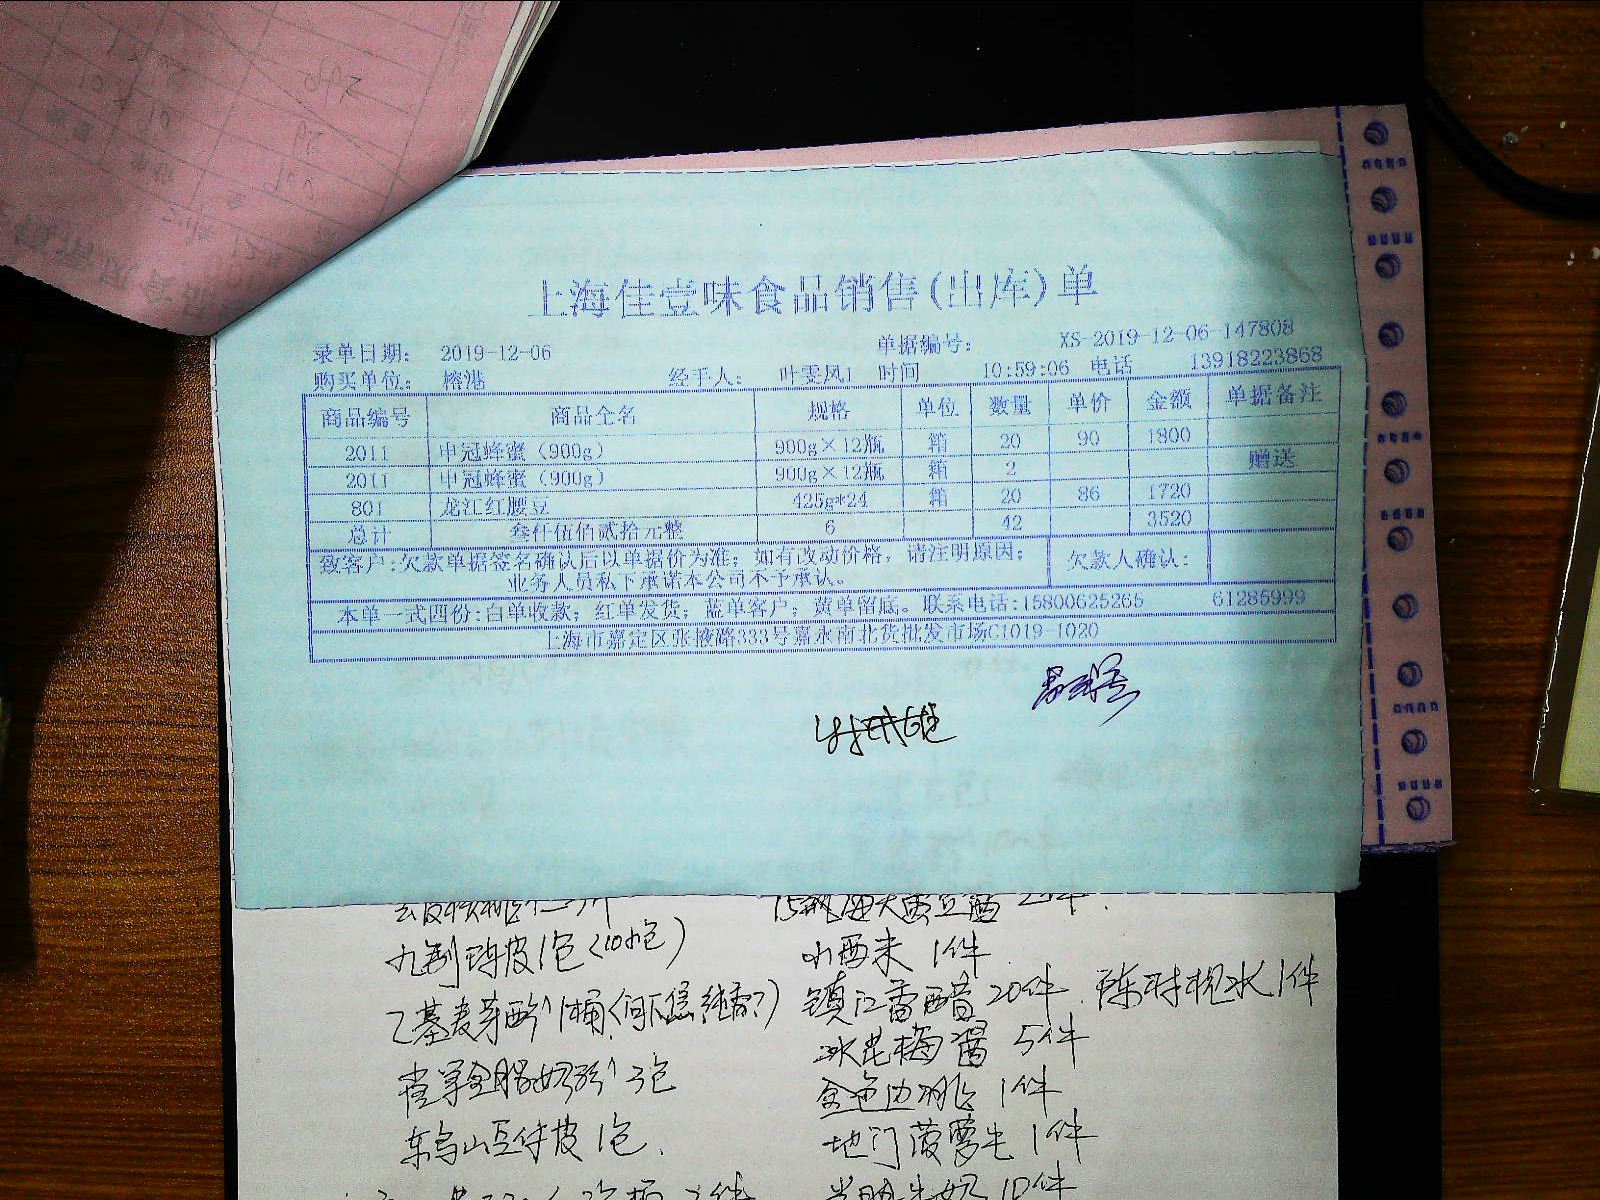 上海佳壹味食品销售(出库)单
录单日期: 2019-12-06 单据编号: XS-2019-12-06-147808
购买单位: 榕港 经手人: 叶雯凤1 时间 10:59:06 电话 13918223868
商品编号 商品全名 规格 单位 数量 单价 金额 单据备注
2011 申冠蜂蜜(900g) 900g×12瓶 箱 20 90 1800
2011 申冠蜂蜜(900g) 900g×12瓶 箱 2 赠送
801 龙江红腰豆 425g*24 箱 20 86 1720
总计 叁仟伍佰贰拾元整 6 42 3520
致客户:欠款单据签名确认后以单据价为准;如有改动价格,请注明原因; 欠款人确认:
业务人员私下承诺本公司不予承认。
本单一式四份:白单收款;红单发货;蓝单客户;黄单留底。联系电话:15800625265 61285999
上海市嘉定区张掖路333号嘉永南北货批发市场C1019-1020
九制陈皮1包(10小包) 小西米 1件
乙基麦芽酚1桶 镇江香醋 20件
全脂奶粉 3包 冰花梅酱 5件
1包 金色 1件
地门菠萝 1件
10件